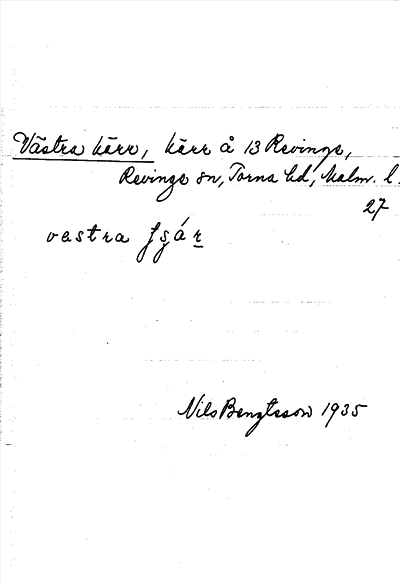 Västra kärr, kärr å 13 Revinge,
Revinge sn, Torna hd, Malm. l.
27
vastra
Nils Bengtsson 1935